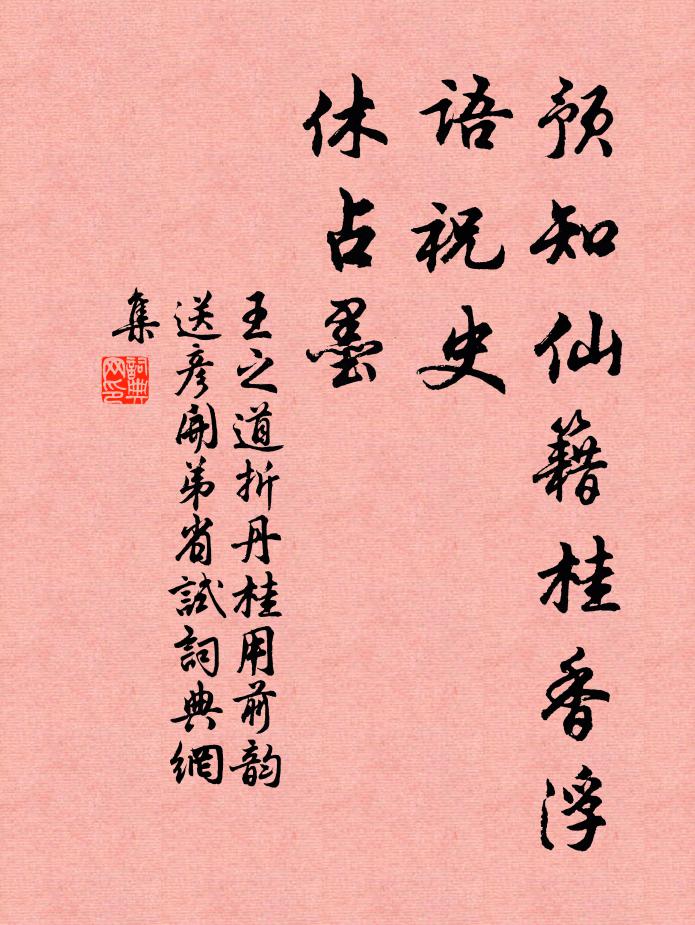 预知仙籍桂香浮
语祝史
休占墨
王之道折丹桂用前韵
送彦開弟省試詞典網
集
詞典
网印